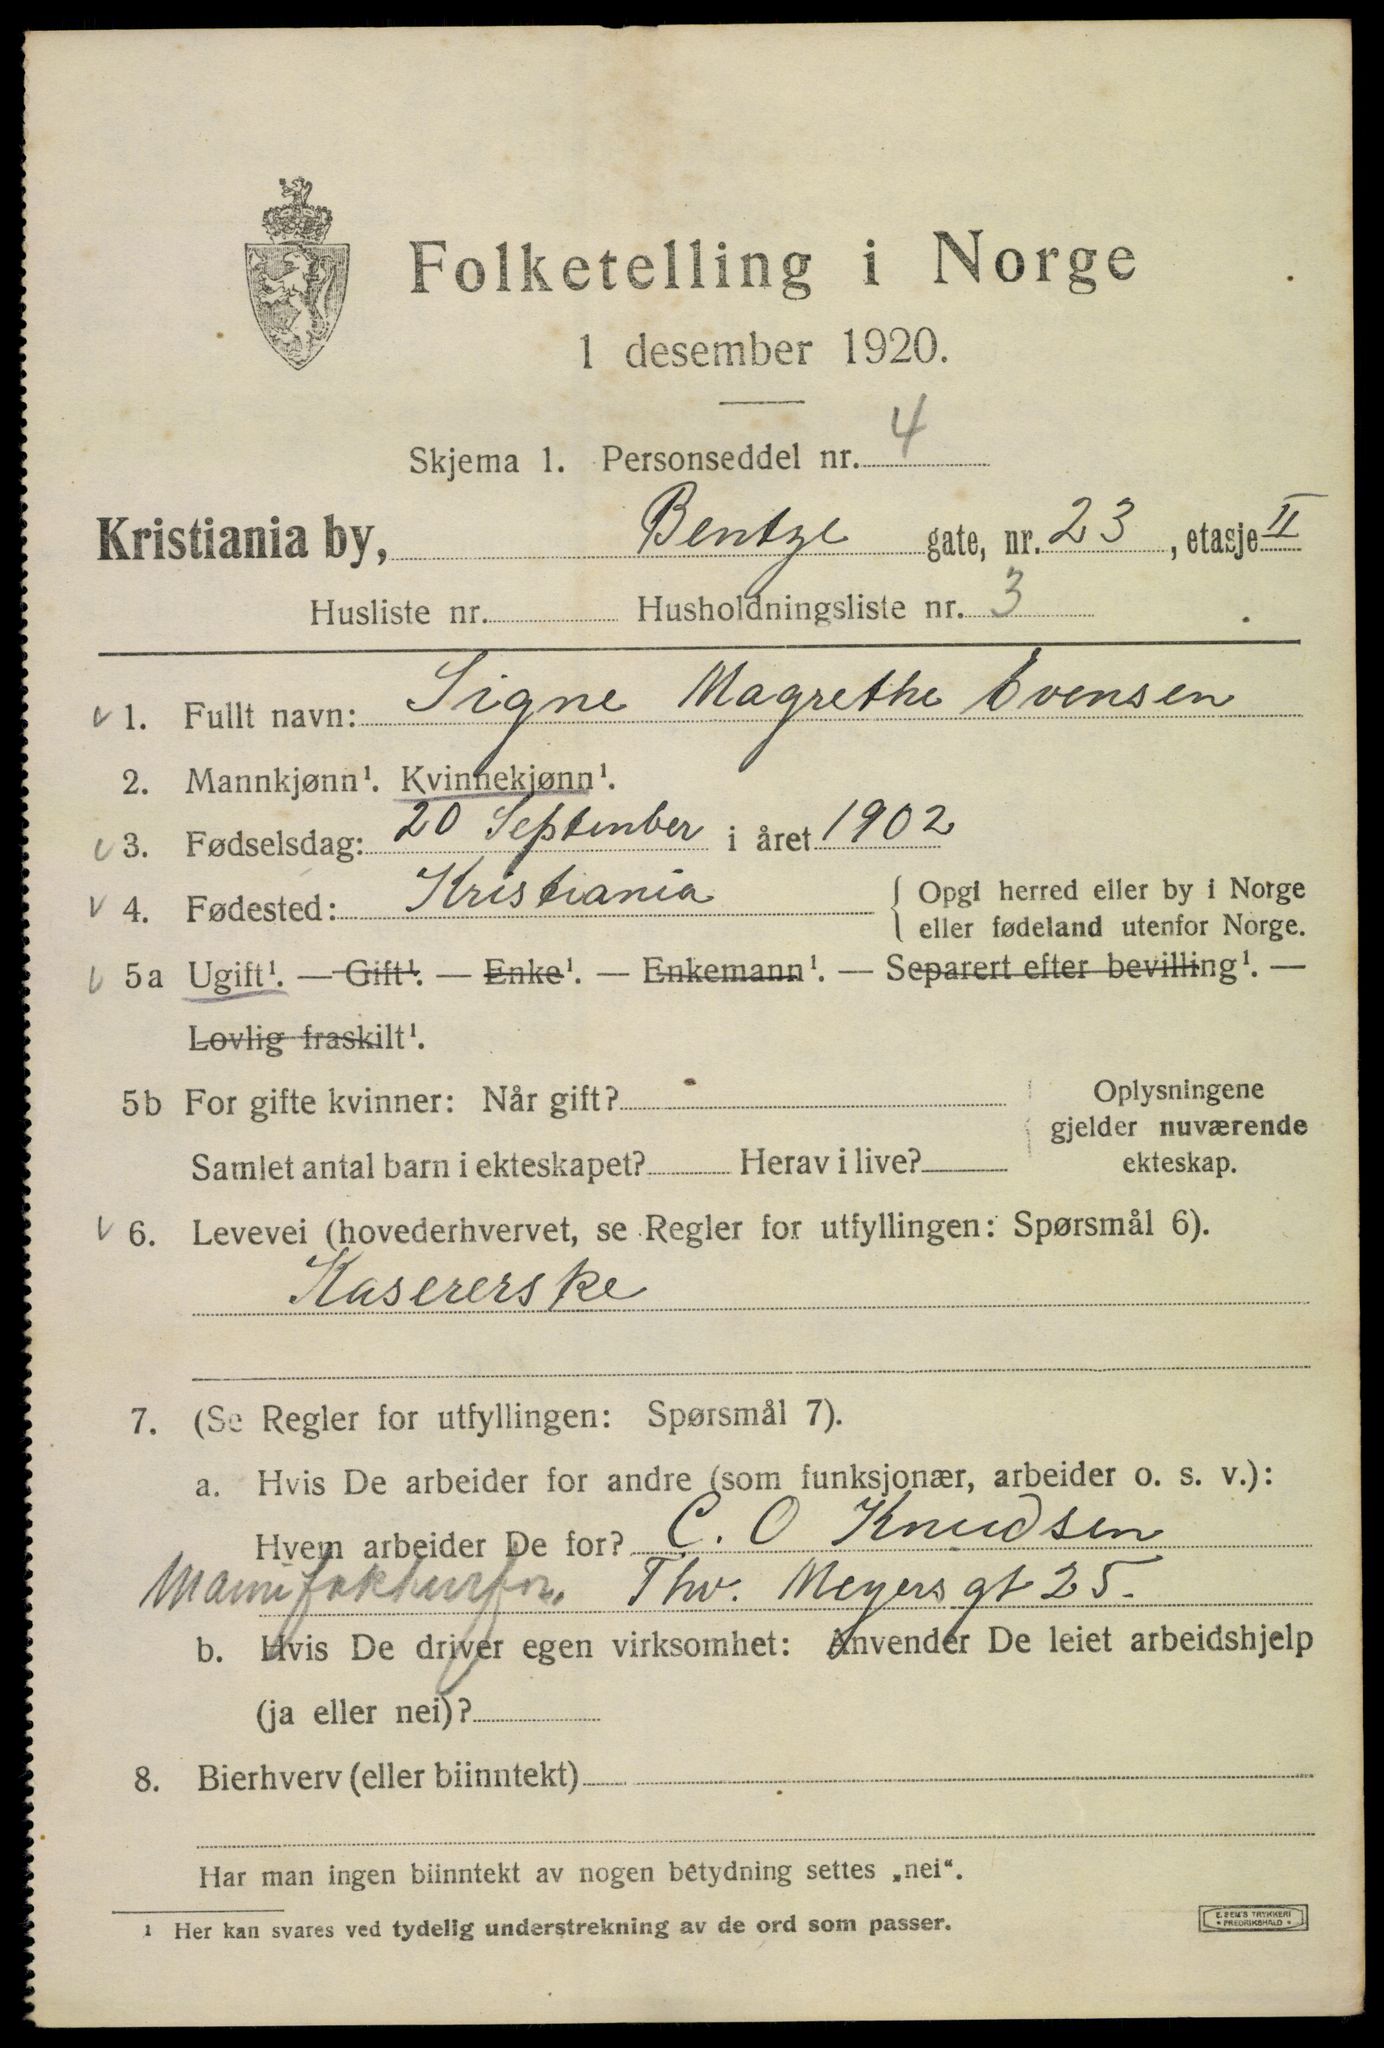 Folketelling i Norge
1 desember 1920.
Skjema 1. Personseddel nr. 4
Kristiania by, Bentze gate, nr. 23, etasje II
Husliste nr. Husholdningsliste nr. 3
1. Fullt navn: Signe Magrethe Evensen
2. Mannkjønn¹. Kvinnekjønn¹.
3. Fødselsdag: 20 September i året 1902
4. Fødested: Kristiania { Opgi herred eller by i Norge
eller fødeland utenfor Norge.
5a Ugift¹. — Gift¹. — Enke¹. — Enkemann¹. — Separert efter bevilling¹. —
Lovlig fraskilt¹.
5b For gifte kvinner: Når gift? Oplysningene
gjelder nuværende
Samlet antal barn i ekteskapet? Herav i live? ekteskap.
6. Levevei (hovederhvervet, se Regler for utfyllingen: Spørsmål 6).
Kasererske
7. (Se Regler for utfyllingen: Spørsmål 7).
a. Hvis De arbeider for andre (som funksjonær, arbeider o. s. v.):
Hvem arbeider De for? C. O Knudsen
Manufakturfor. Thv. Meyers gt 25.
b. Hvis De driver egen virksomhet: Anvender De leiet arbeidshjelp
(ja eller nei)?
8. Bierhverv (eller biinntekt)
Har man ingen biinntekt av nogen betydning settes „nei“.
¹ Her kan svares ved tydelig understrekning av de ord som passer.
E. SEM'S TRYKKERI
• FREDRIKSHALD •